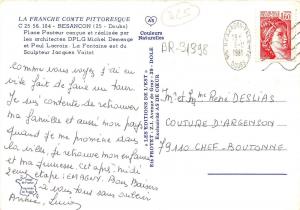 LA FRANCHE COMTE PITTORESQUE
C 25 56. 184 - BESANÇON (25 - Doubs)
Place Pasteur conçue et réalisée par
les architectes DPLG Michel Demenge
et Paul Lacroix. La Fontaine est du
Sculpteur Jacques Voitot
Comme vous voyez, j'ai eu
vite fait de faire un tour.
Je suis contente de retrouver
ma famille et aussi mon passé,
quand je me promène dans
la ville. Je retrouve mon enfance
et ma jeunesse. Cet après-midi
2ème étape : EMAGNY. Bons Baisers
à vous tous sans oublier
Lucien
825
Couleurs
Naturelles
BR-31998
"LES EDITIONS DE L'EST"
Est PROTET - 39 - DOLE
1,60
Mr et Mme René DESLIAS
COUTURE D'ARGENSON
79110 CHEF-BOUTONNE